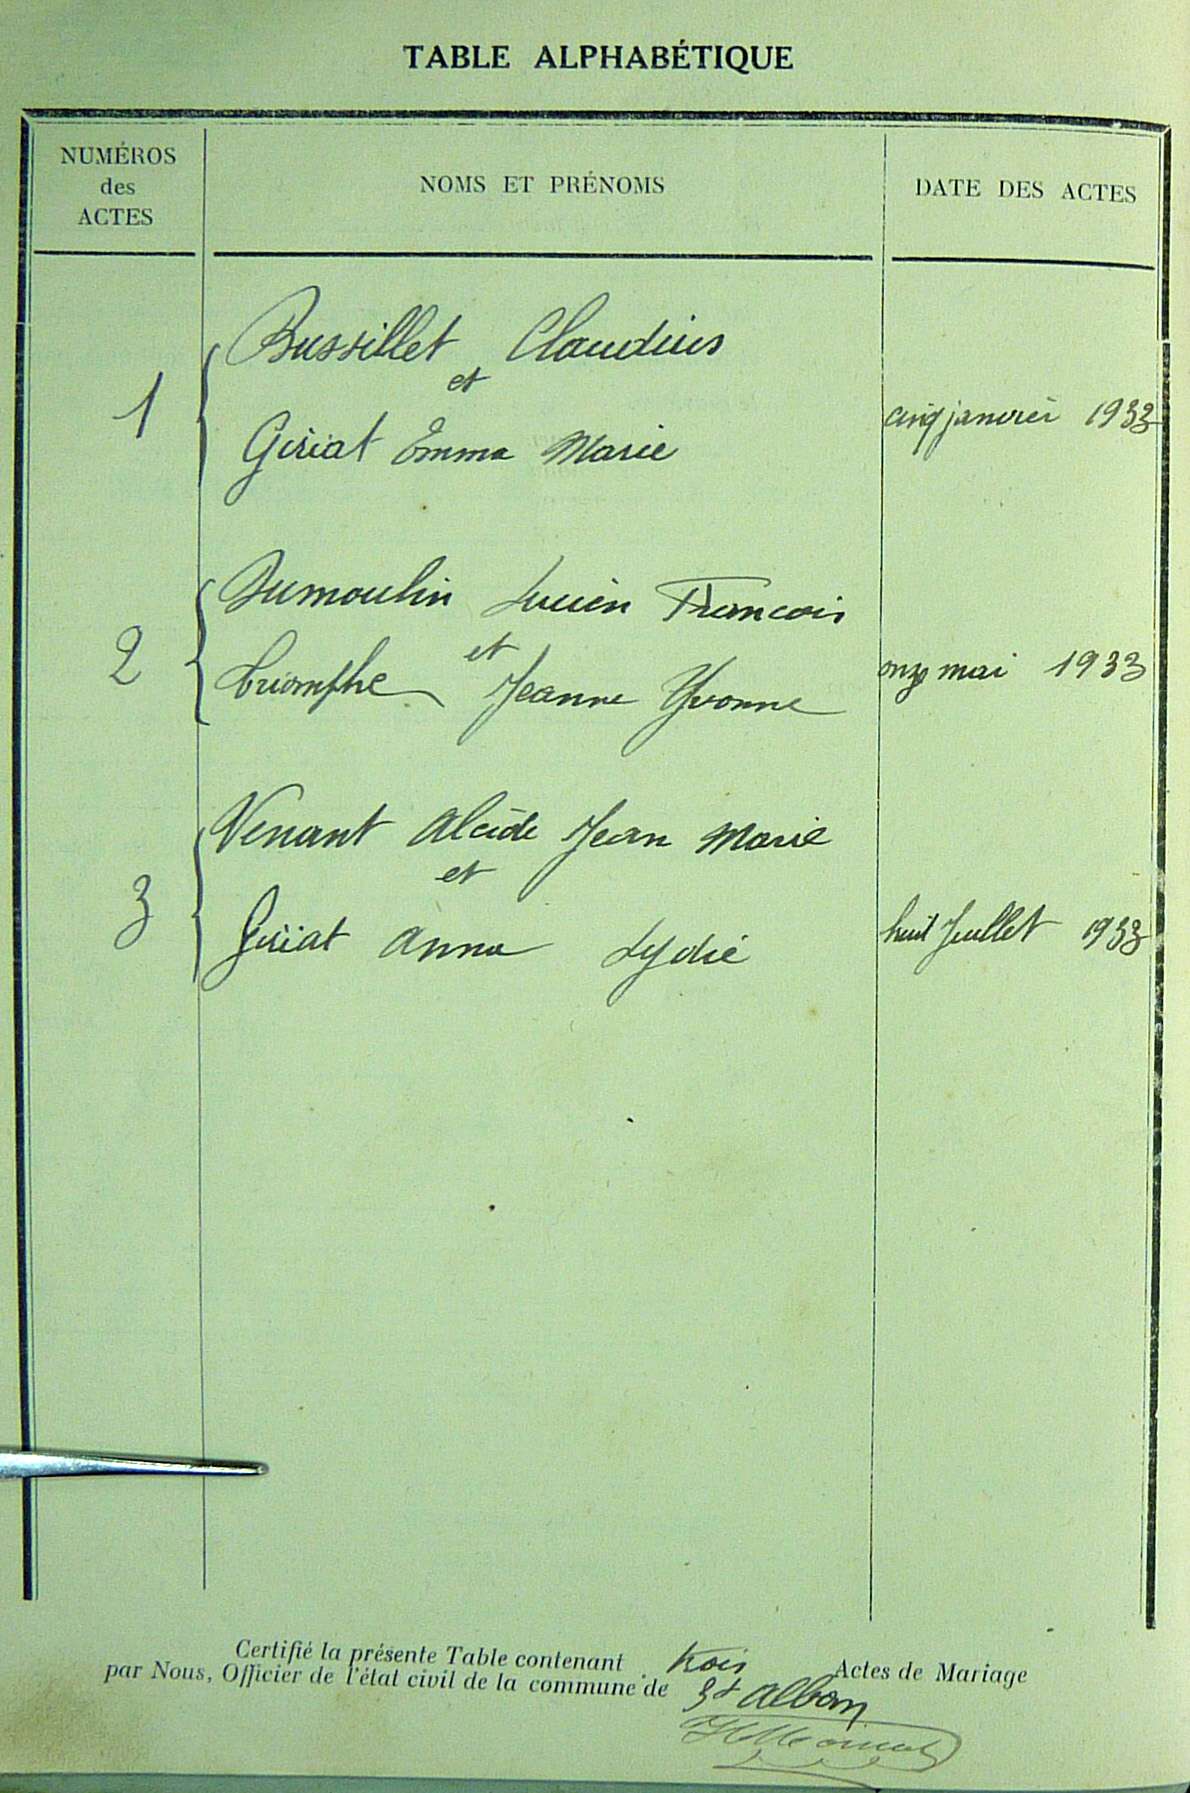 TABLE ALPHABÉTIQUE
NUMÉROS
des
ACTES
NOMS ET PRÉNOMS
DATE DES ACTES
Bussillet Claudius
et
1
cinq janvier 1933
Giriat Emma Marie
Dumoulin Lucien Francois
et
2
onze mai 1933
Triomphe Jeanne Yvonne
Venant Alcide Jean Marie
et
3
huit Juillet 1933
Giriat Anna Lydie
Certifié la présente Table contenant trois Actes de Mariage
par Nous, Officier de l'état civil de la commune de St Alban